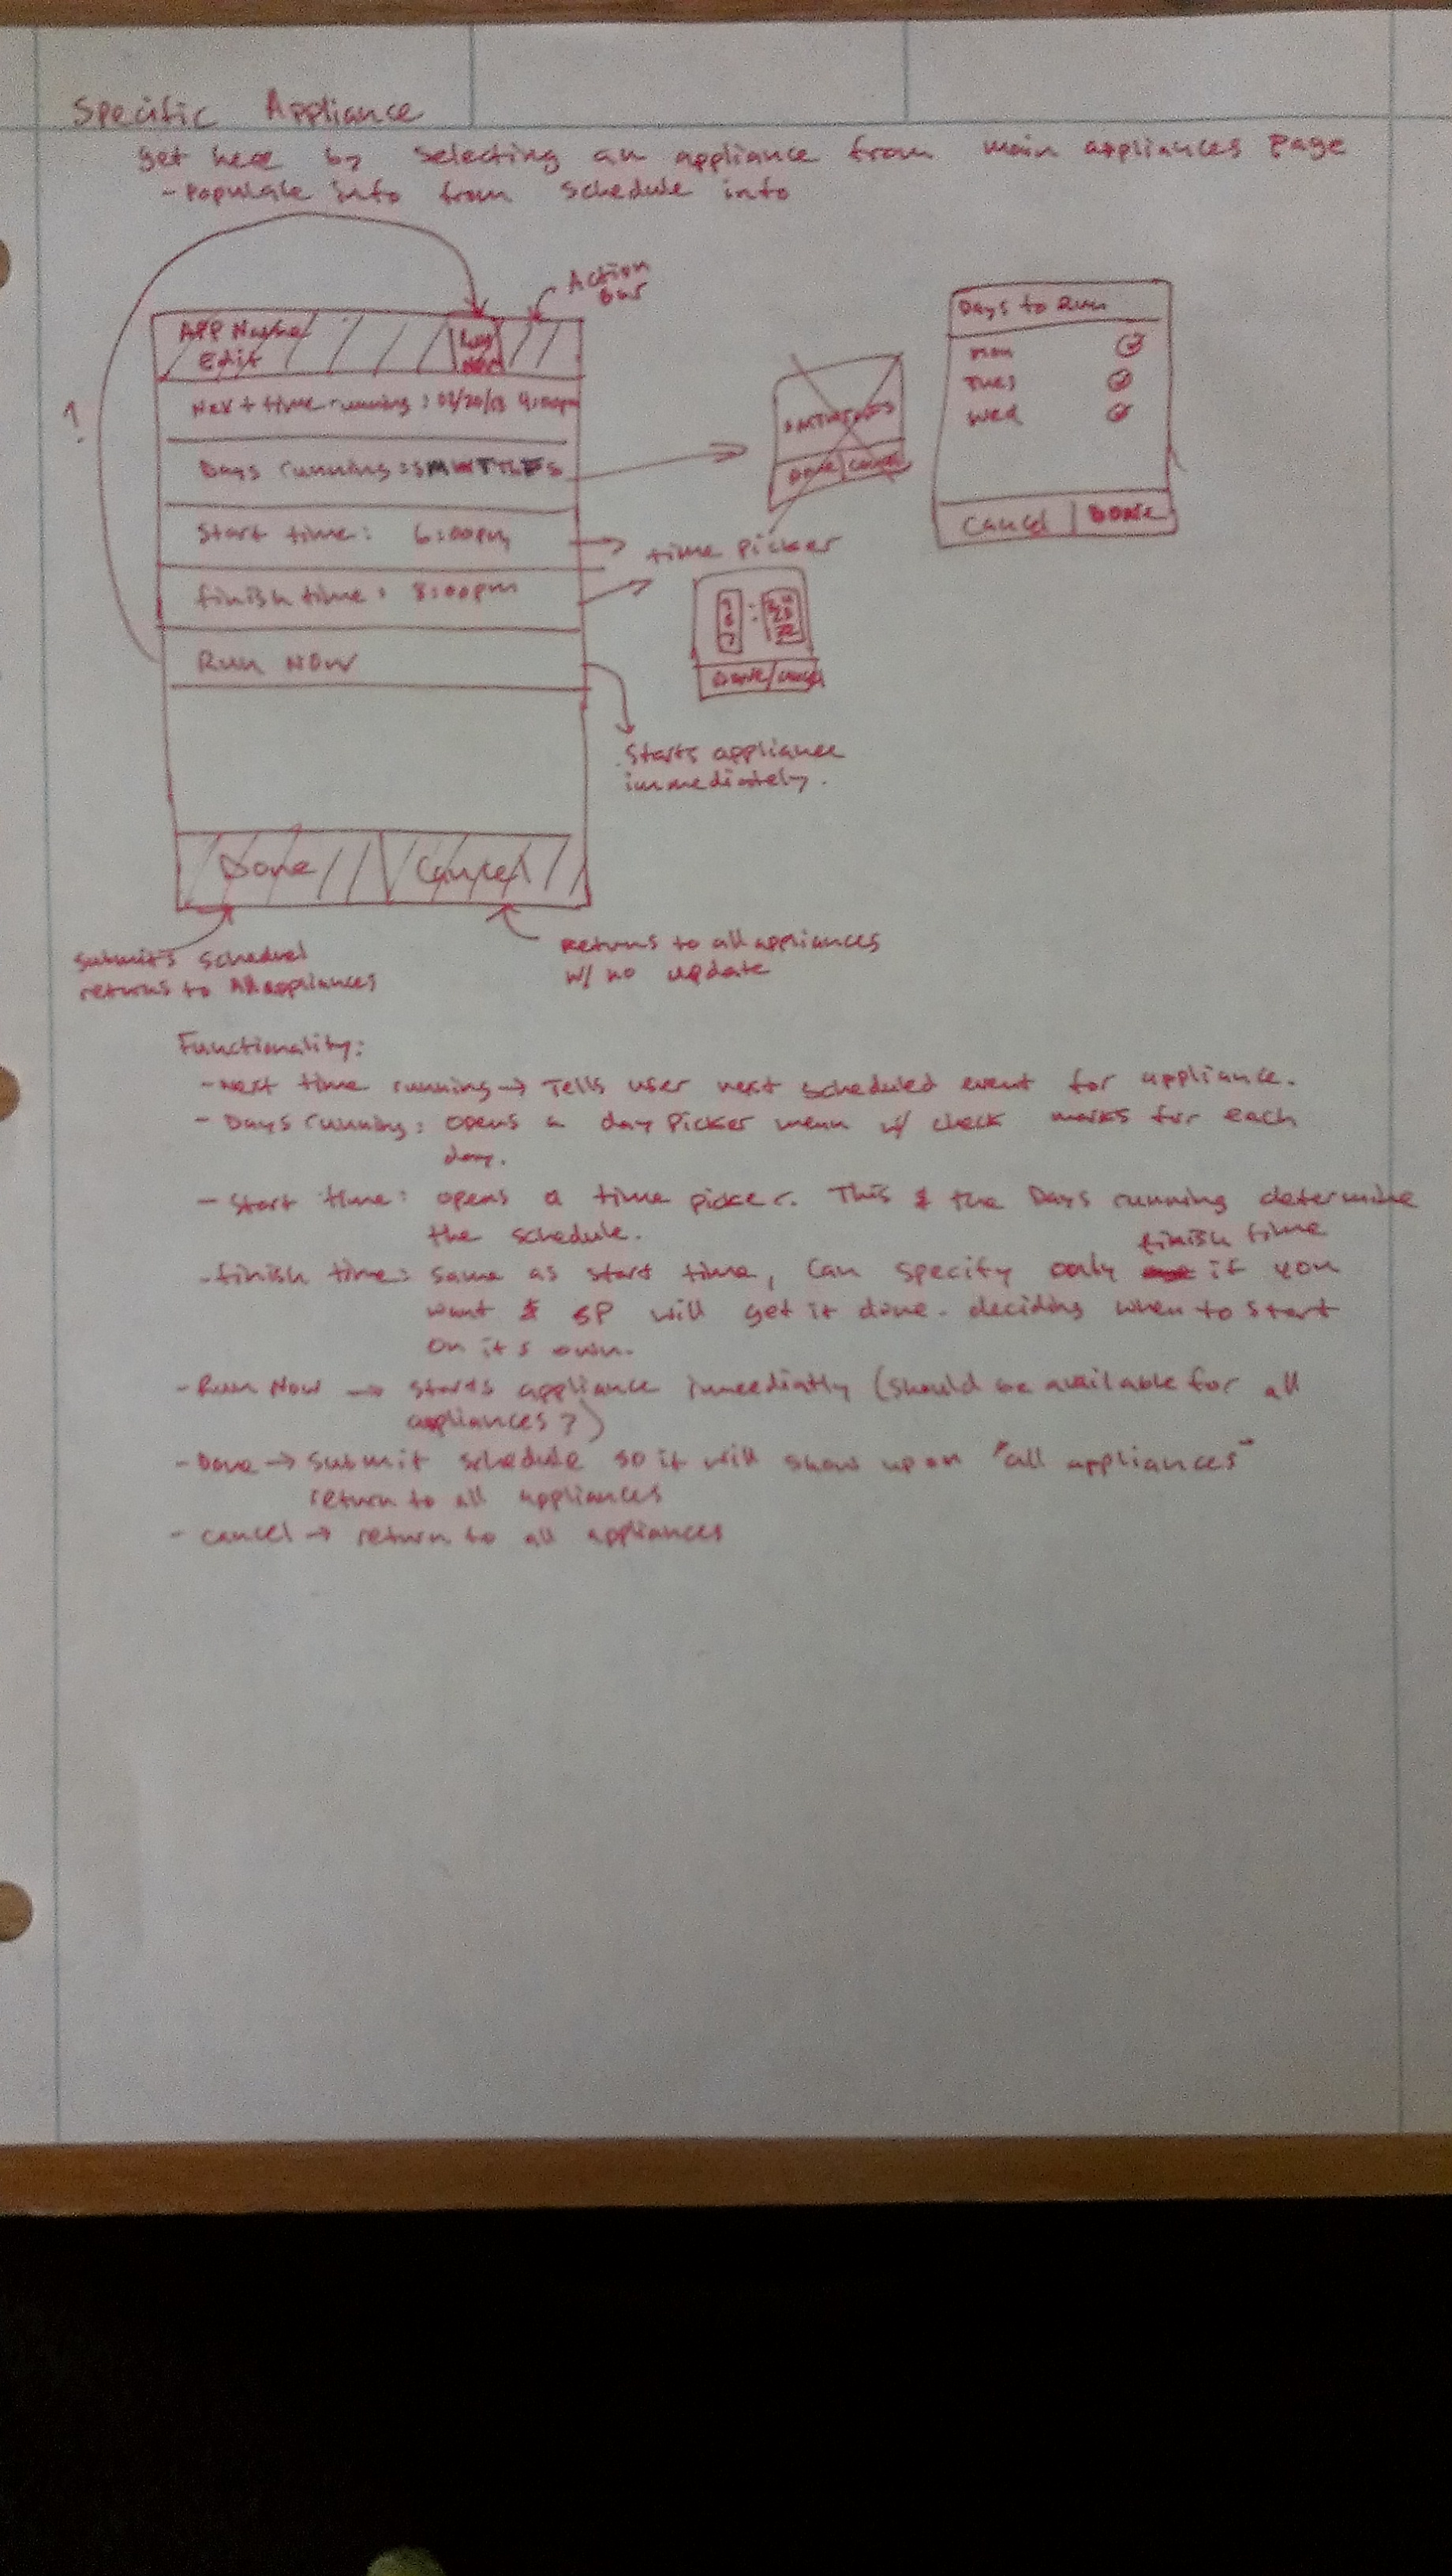 Specific Appliance
get here by selecting an appliance from main appliances page
- Populate info from schedule info
Action
bar
APP Name
Edit
Run
Now
?
Next time running: 02/20/13 4:00pm
Days running: SMWTThFS
Start time: 6:00pm
finish time: 8:00pm
Run Now
Done
Cancel
Done/Cancel
Days to Run
Mon
Tues
Wed
Cancel | Done
time picker
Done/Cancel
Starts appliance
immediately.
submits schedul
returns to All appliances
Returns to all appliances
w/ no update
Functionality:
- Next time running → Tells user next scheduled event for appliance.
- Days running: opens a day picker menu w/ check marks for each
day.
- Start time: opens a time picker. This & the Days running determine
the schedule.
finish time
- finish time: same as start time, can specify only if you
want & SP will get it done. deciding when to start
on its own.
- Run Now → starts appliance immediatly (should be available for all
appliances?)
- Done → submit schedule so it will show up on "all appliances"
return to all appliances
- cancel → return to all appliances